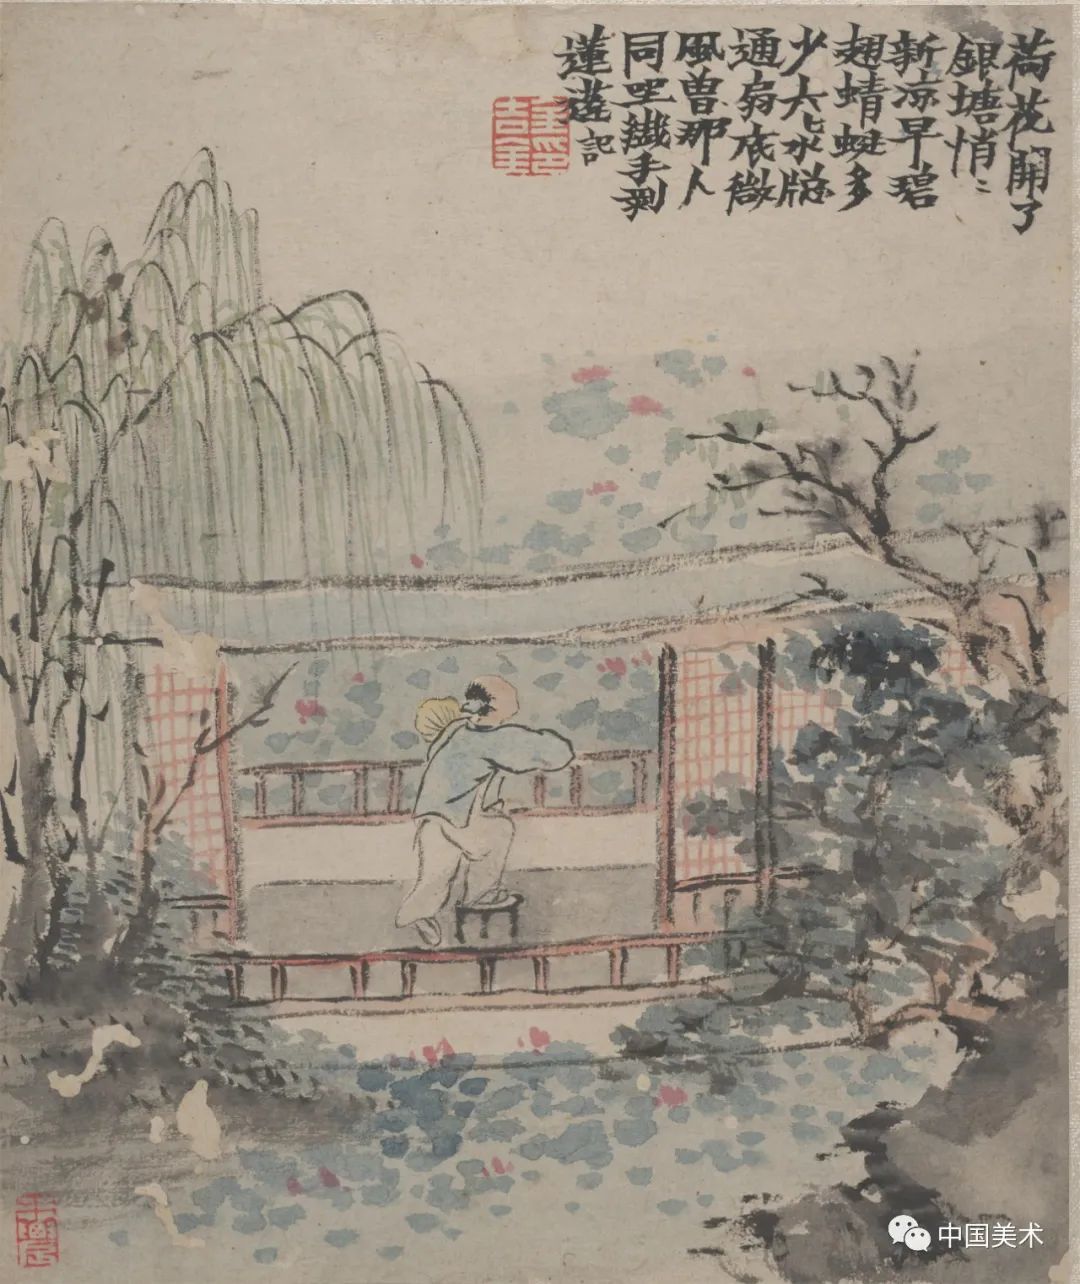 荷花開了
銀塘悄〻
新涼早碧
翅蜻蜓多
少六〻水牕
通扇底微
風曽那人
同坐纖手剝
蓮蓬 記
金吉金印
中国美术